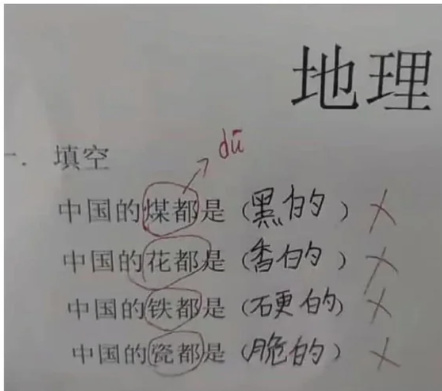 地理
dū
一. 填空
中国的煤都是（黑的）×
中国的花都是（香的）×
中国的铁都是（硬的）×
中国的瓷都是（脆的）×